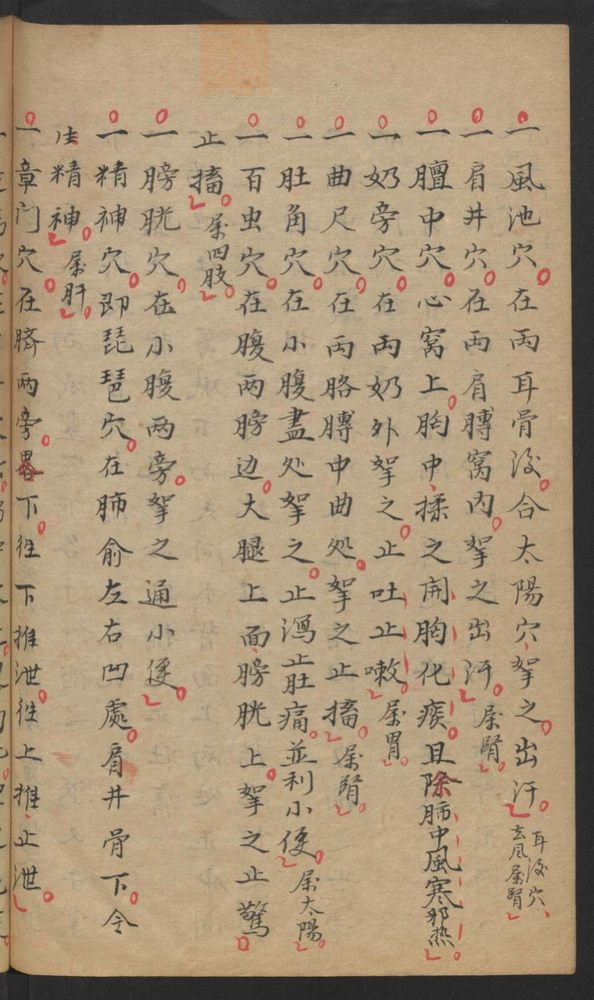 一風池穴在両耳骨後合太陽穴拏之出汗 耳後穴去风属腎
一肩井穴在両肩膊窩内拏之出汗属腎
一膻中穴心窝上胸中揉之開胸化痰且除肺中風寒邪热
一奶旁穴在両奶外拏之止吐止嗽属胃
一曲尺穴在両胳膊中曲処拏之止搐属腎
一肚角穴在小腹盡处拏之止瀉止肚痛並利小便属太陽
一百虫穴在腹両膀边大腿上面膀胱上拏之止驚
止搐属四肢
一膀胱穴在小腹两旁拏之通小便
一精神穴即琵琶穴在肺俞左右凹處肩井骨下令
生精神属肝
一章门穴在臍两旁畧下往下推泄往上推止泄